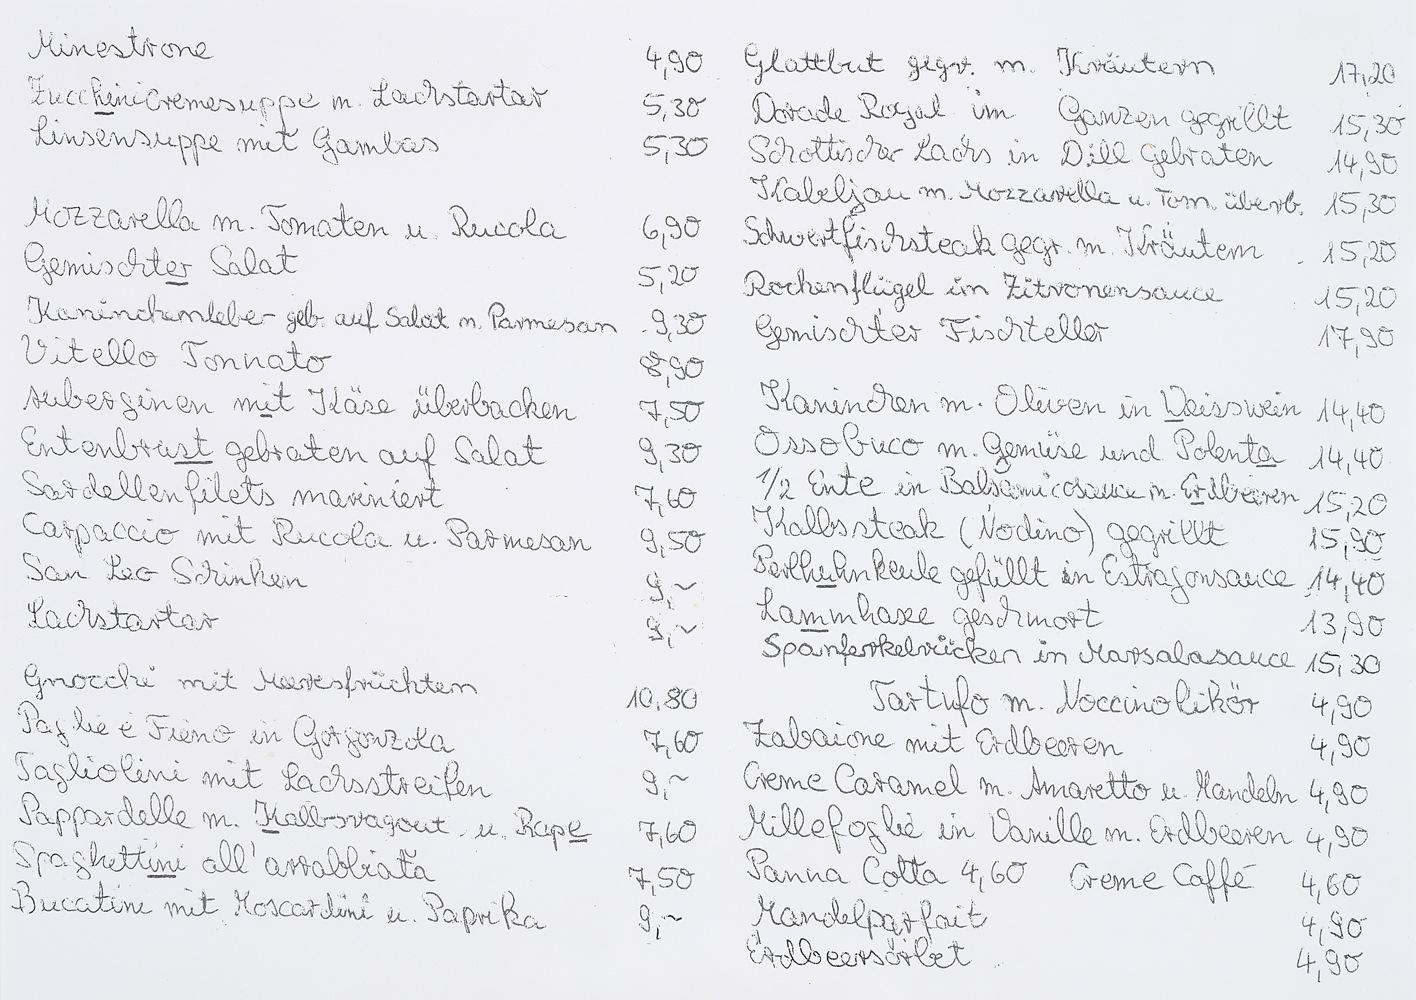 Minestrone 4,90
Zucchinicremesuppe m. Lachstartar 5,30
Linsensuppe mit Gambas 5,30
Mozzarella m. Tomaten u. Rucola 6,90
Gemischter Salat 5,20
Kaninchenleber geb. auf Salat m. Parmesan 9,30
Vitello Tonnato 8,90
Auberginen mit Käse überbacken 7,50
Entenbrust gebraten auf Salat 9,30
Sardellenfilets mariniert 7,60
Carpaccio mit Rucola u. Parmesan 9,50
San Leo Schinken 9,~
Lachstartar 9,~
Gnocchi mit Meeresfrüchten 10,80
Paglie e Fieno in Gorgonzola 7,60
Tagliolini mit Lachsstreifen 9,~
Pappardelle m. Kalbsragout u. Rape 7,60
Spaghettini all'arrabbiata 7,50
Bucatini mit Moscardini u. Paprika 9,~
Glattbut gegr. m. Kräutern 17,20
Dorade Royal im Ganzen gegrillt 15,30
Schottischer Lachs in Dill gebraten 14,90
Kabeljau m. Mozzarella u. Tom. überb. 15,30
Schwertfischsteak gegr. m. Kräutern 15,20
Rochenflügel in Zitronensauce 15,20
Gemischter Fischteller 17,90
Kaninchen m. Oliven in Weisswein 14,40
Ossobuco m. Gemüse und Polenta 14,40
1/2 Ente in Balsamicosauce m. Erdbeeren 15,20
Kalbssteak (Nodino) gegrillt 15,90
Perlhuhnkeule gefüllt in Estragonsauce 14,40
Lammhaxe geschmort 13,90
Spanferkelrücken in Marsalasauce 15,30
Tartufo m. Noccinolikör 4,90
Zabaione mit Erdbeeren 4,90
Creme Caramel m. Amaretto u. Mandeln 4,90
Millefoglie in Vanille m. Erdbeeren 4,90
Panna Cotta 4,60 Creme Caffé 4,60
Mandelparfait 4,90
Erdbeersorbet 4,90